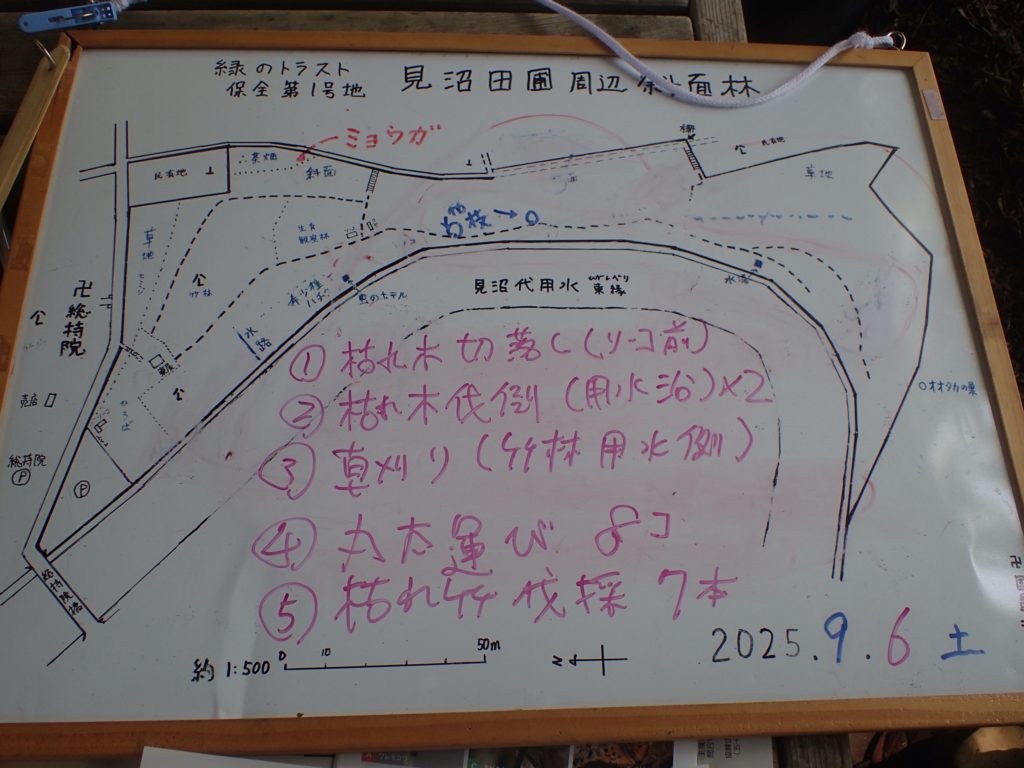 緑のトラスト
保全第1号地
見沼田圃周辺斜面林
ミョウガ
柵
民有地
茶畑
斜面
民有地
草地
草地
生育
観察林
竹林
水路
虫のホテル
見沼代用水
東縁
卍総持院
売店
総持院
P
P
総持院橋
オオタカの巣
① 枯れ木切落し(リーコ前)
② 枯れ木伐倒(用水沿)×2
③ 草刈り(竹林用水側)
④ 丸太運び 8コ
⑤ 枯れ竹伐採 7本
約1:500
0 10 50m
N
2025.9.6 土